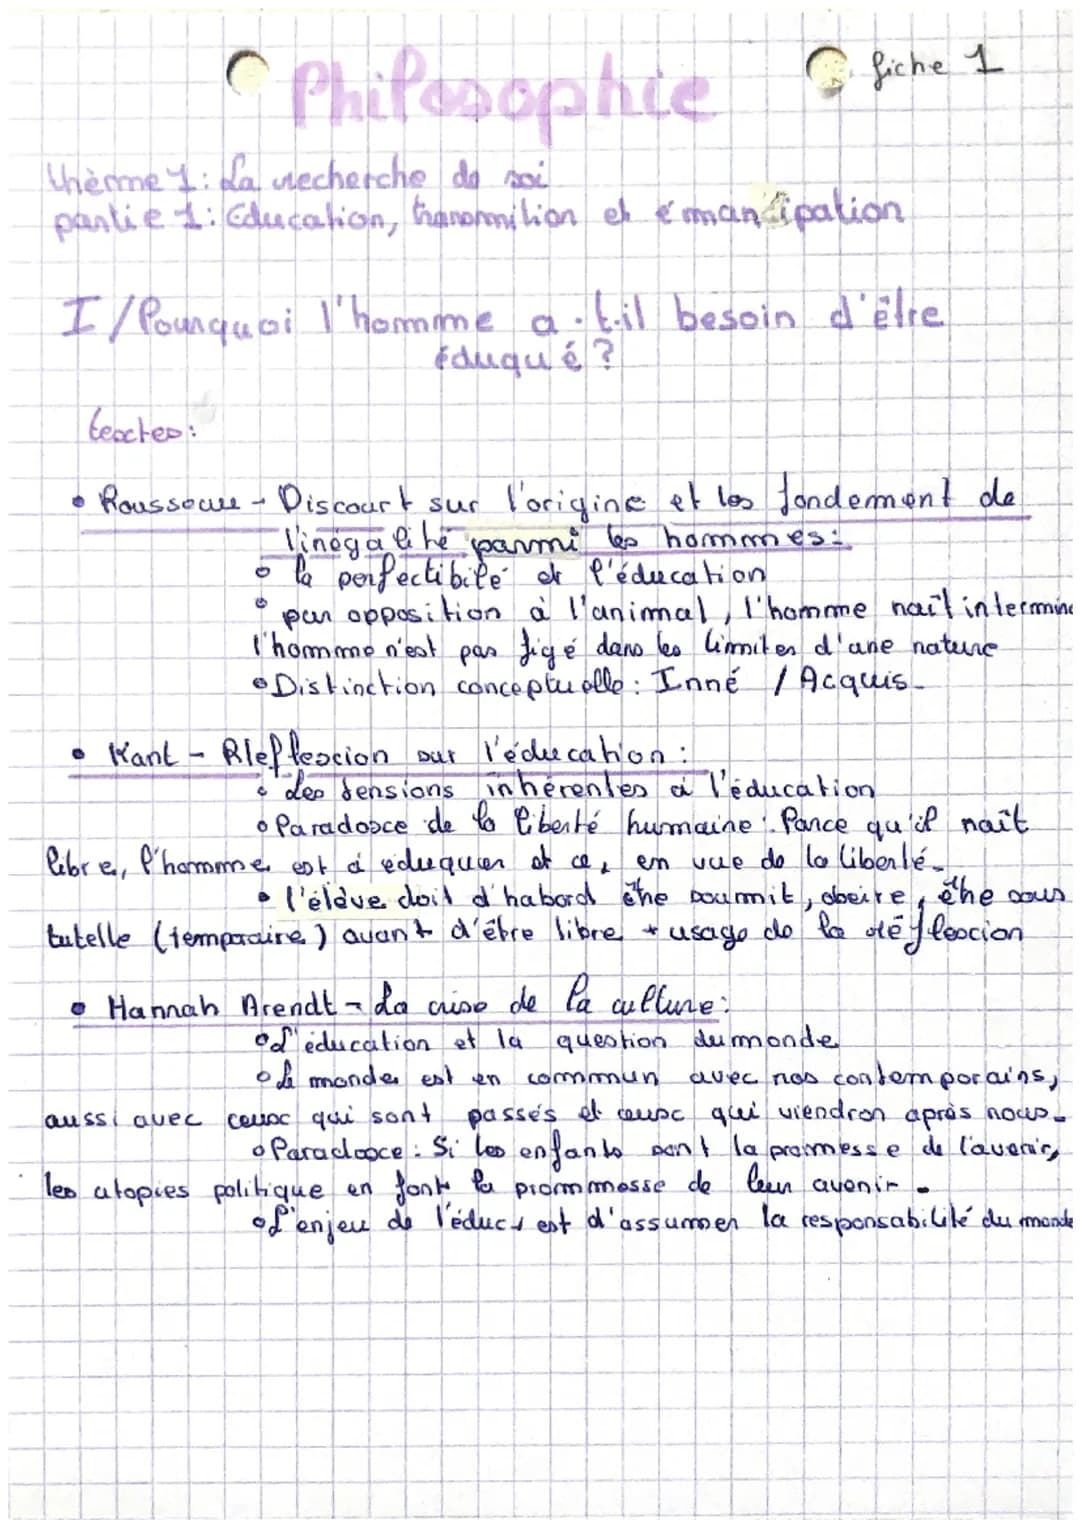 Philosophie
fiche 1
thème 1: La recherche de soi
partie 1: Education, transmition et émancipation
I/Pourquoi l'homme a-t-il besoin d'être
éduqué ?
textes:
• Rousseau - Discourt sur l'origine et les fondement de
l'inégalité parmi les hommes:
° la perfectibilé et l'éducation
° par opposition à l'animal, l'homme naît intermine
l'homme n'est pas figé dans les limites d'une nature
° Distinction conceptuelle: Inné / Acquis.
• Kant - Rleflexion sur l'éducation:
° Les tensions inhérentes à l'éducation
° Paradoxe de la liberté humaine: Parce qu'il naît
libre, l'homme est à eduquer et ce, em vue de la liberté.
° l'élève doit d'habord être soumit, obeire, être sous
tutelle (temporaire) avant d'être libre + usage de la réflexion
• Hannah Arendt - La crise de la culture:
° L'éducation et la question du monde
° Le monde est en commun avec nos contemporains,
aussi avec ceux qui sont passés et ceux qui viendron après nous.
° Paradoxe: Si les enfants sont la promesse de l'avenir,
les utopies politique en font la prommesse de leur avenir.
° L'enjeu de l'éduc° est d'assumer la responsabilité du monde